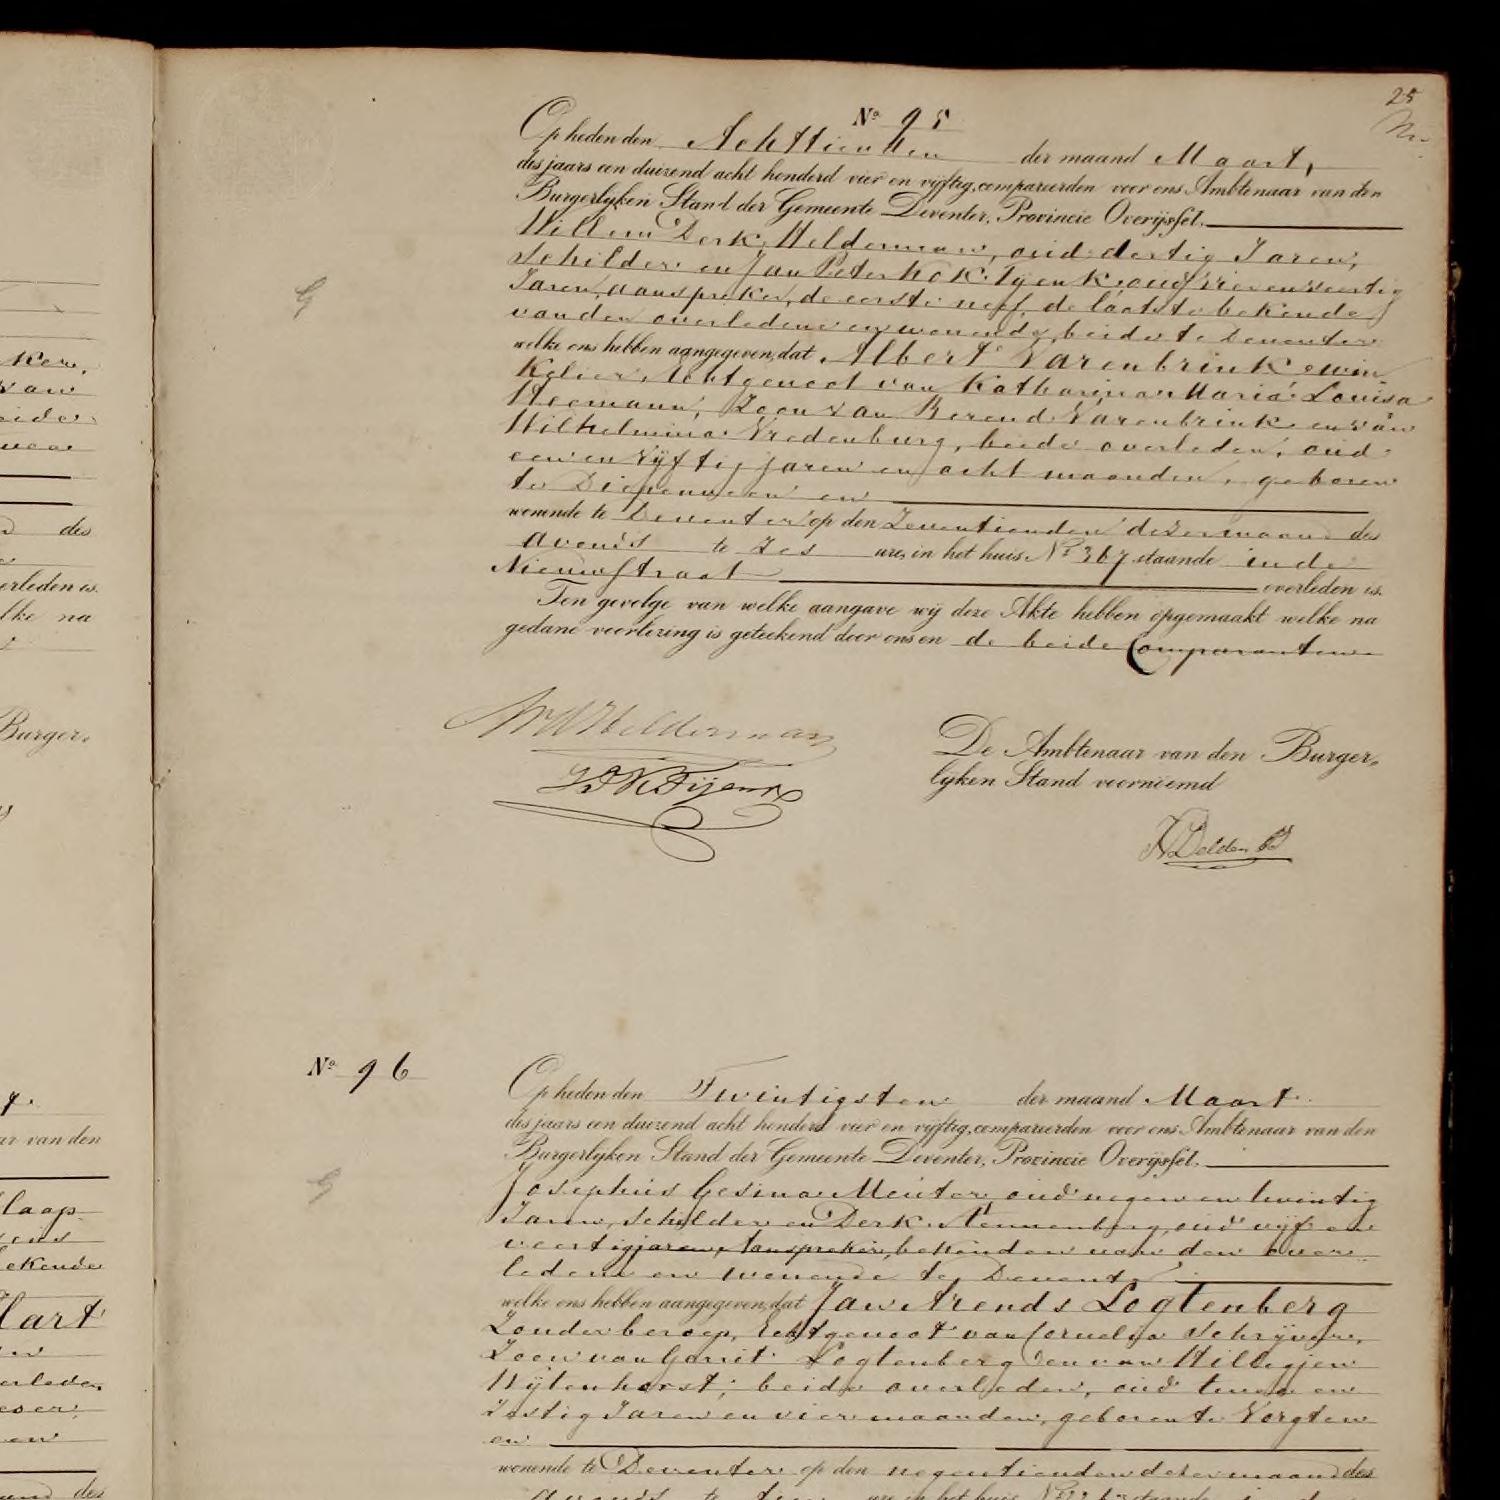 25
Nº 95
Op heden den Achttienden der maand Maart,
des jaars een duizend acht honderd vier en vijftig, compareerden voor ons Ambtenaar van den
Burgerlyken Stand der Gemeente Deventer, Provincie Overijssel.
Willem Derk Helderman, oud dertig Jaren,
Schilder en Jan Peter Kok Tyenk, oud vier en veertig
Jaren, aanspreker, de eerste neef, de laatste bekende
van den overledene en wonende beide te Deventer
welke ons hebben aangegeven, dat Albert Varenbrink, wijn
Koper, Echtgenoot van Katharina Maria Louisa
Heemann, Zoon van Berend Varenbrink en van
Wilhelmina Vredenburg, beide overleden, oud
een en Vyftig jaren en acht maanden, geboren
te Diepenveen en
wonende te Deventer op den Zeventienden dezer maand des
avonds te Zes ure, in het huis Nº 367 staande in de
Nieuwstraat overleden is.
Ten gevolge van welke aangave wij deze Akte hebben opgemaakt welke na
gedane voorlezing is geteekend door ons en de beide Comparanten
W D Helderman
J P K Tijenk
De Ambtenaar van den Burger-
lyken Stand voornoemd
Nº 96
Op heden den Twintigsten der maand Maart
des jaars een duizend acht honderd vier en vijftig, compareerden voor ons Ambtenaar van den
Burgerlyken Stand der Gemeente Deventer, Provincie Overijssel.
Josephus Gesinus Meuter, oud negen en twintig
Jaren, Schilder en Derk Nennenberg, oud vyf en
veertig jaren, Aanspreker, bekenden van den over
ledene en wonende te Deventer
welke ons hebben aangegeven, dat Jan Arends Logtenberg
Zonder beroep, Echtgenoot van Cornelia Schryver,
Zoon van Gerrit Logtenberg en van Willegjen
Wijtenhorst, beide overleden, oud twee en
Zestig Jaren en vier maanden, geboren te Vorgten
en
wonende te Deventer op den negentienden dezer maand des